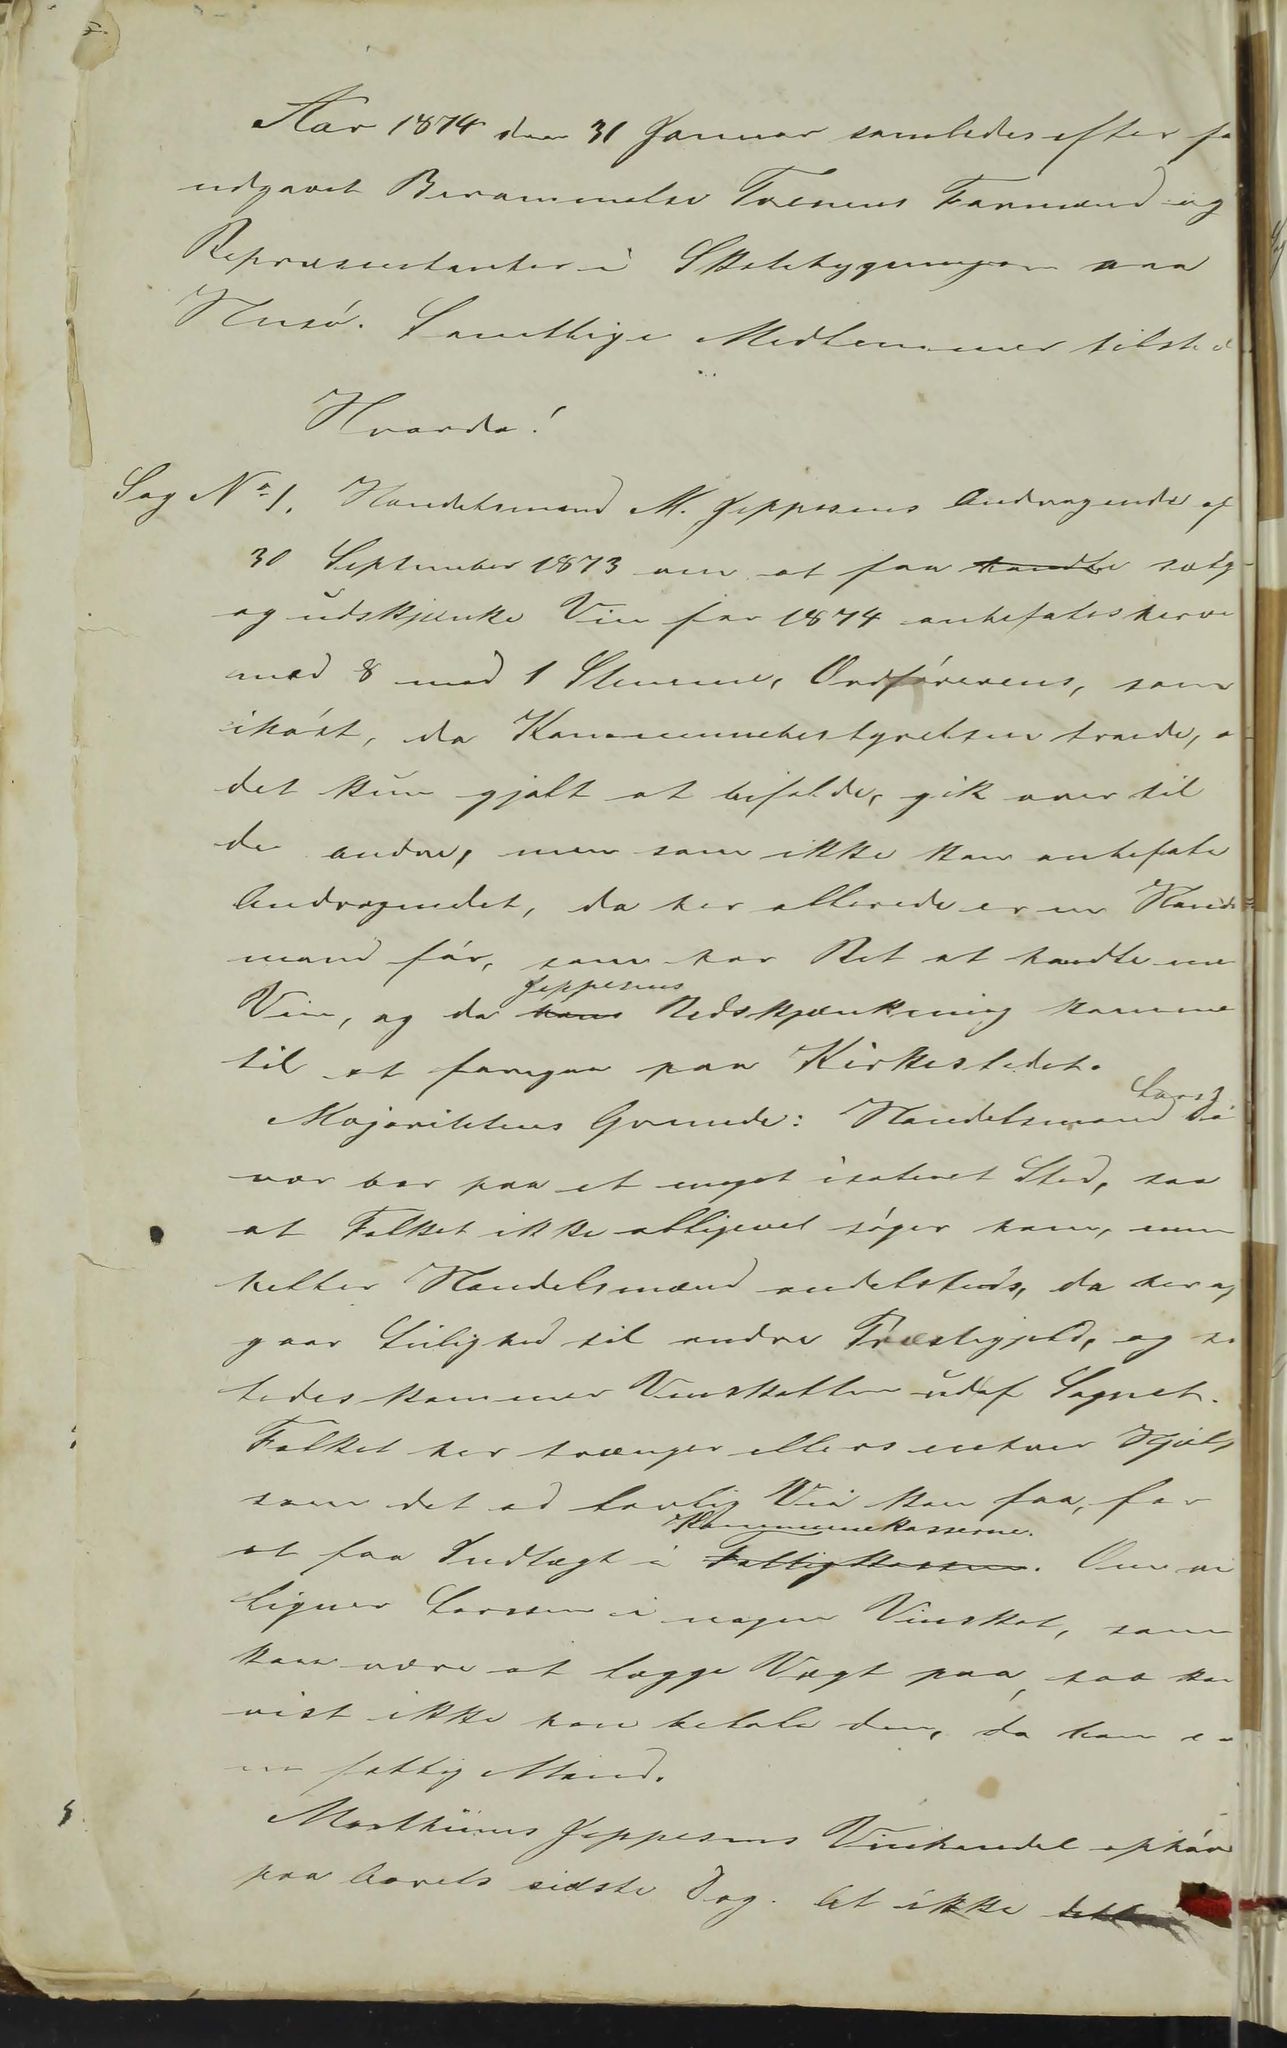 Aar 1874 den 31 Januar samledes efter fo
udgaaet Berammelse Trænens Formænd og
Repræsentanter i Skolebygningen paa
Husø. Samtlige Medlemmer tilsted
Hvorda!
Sag No 1. Handelsmand M. Jeppesens Andragende af
30 September 1873 om at faa handle sælg
og udskjænke Vin for 1874 anbefales herve
med 8 mod 1 Stemme, Ordførerens, som
ihøst, da Kommunebestyrelsen troede, a
det kun gjalt at bifalde, gik over til
de andre, men som ikke kan anbefale
Andragendet, da her allerede er en Hand
mand før, som har Ret at handle me
Jeppesens
Vin, og da hans Udskjænkning komme
til at foregaa paa Kirkestedet.
Lars
Majoritetens Grunde: Handelsmand
vær bor paa et meget isoleret Sted, saa
at Folket ikke alligevel søger ham, men
heller Handelsmænd andetsteds, da her af
gaar Leilighed til andre Præstegjeld, og saa
ledes kommer Vinskatten ud af Sognet.
Folket her trænger ellers enhver Hjælp
som det ad lovlig Vei kan faa, for
Kommunekasserne.
at faa Indtægt i Fattigkassen. Om vi
ligner Larssen i nogen Vinskat, som
kan være at lægge Vægt paa, saa kan
vist ikke han betale den, da han e
en fattig Mand.
Marthinus Jeppesens Vinhandel ophør
paa Aarets sidste Dag. At ikke